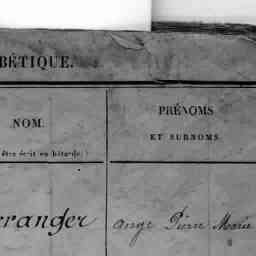 BÉTIQUE.
NOM.
être écrit en bâtarde.)
PRÉNOMS
ET SURNOMS.
rranger
ange Pierre Marie